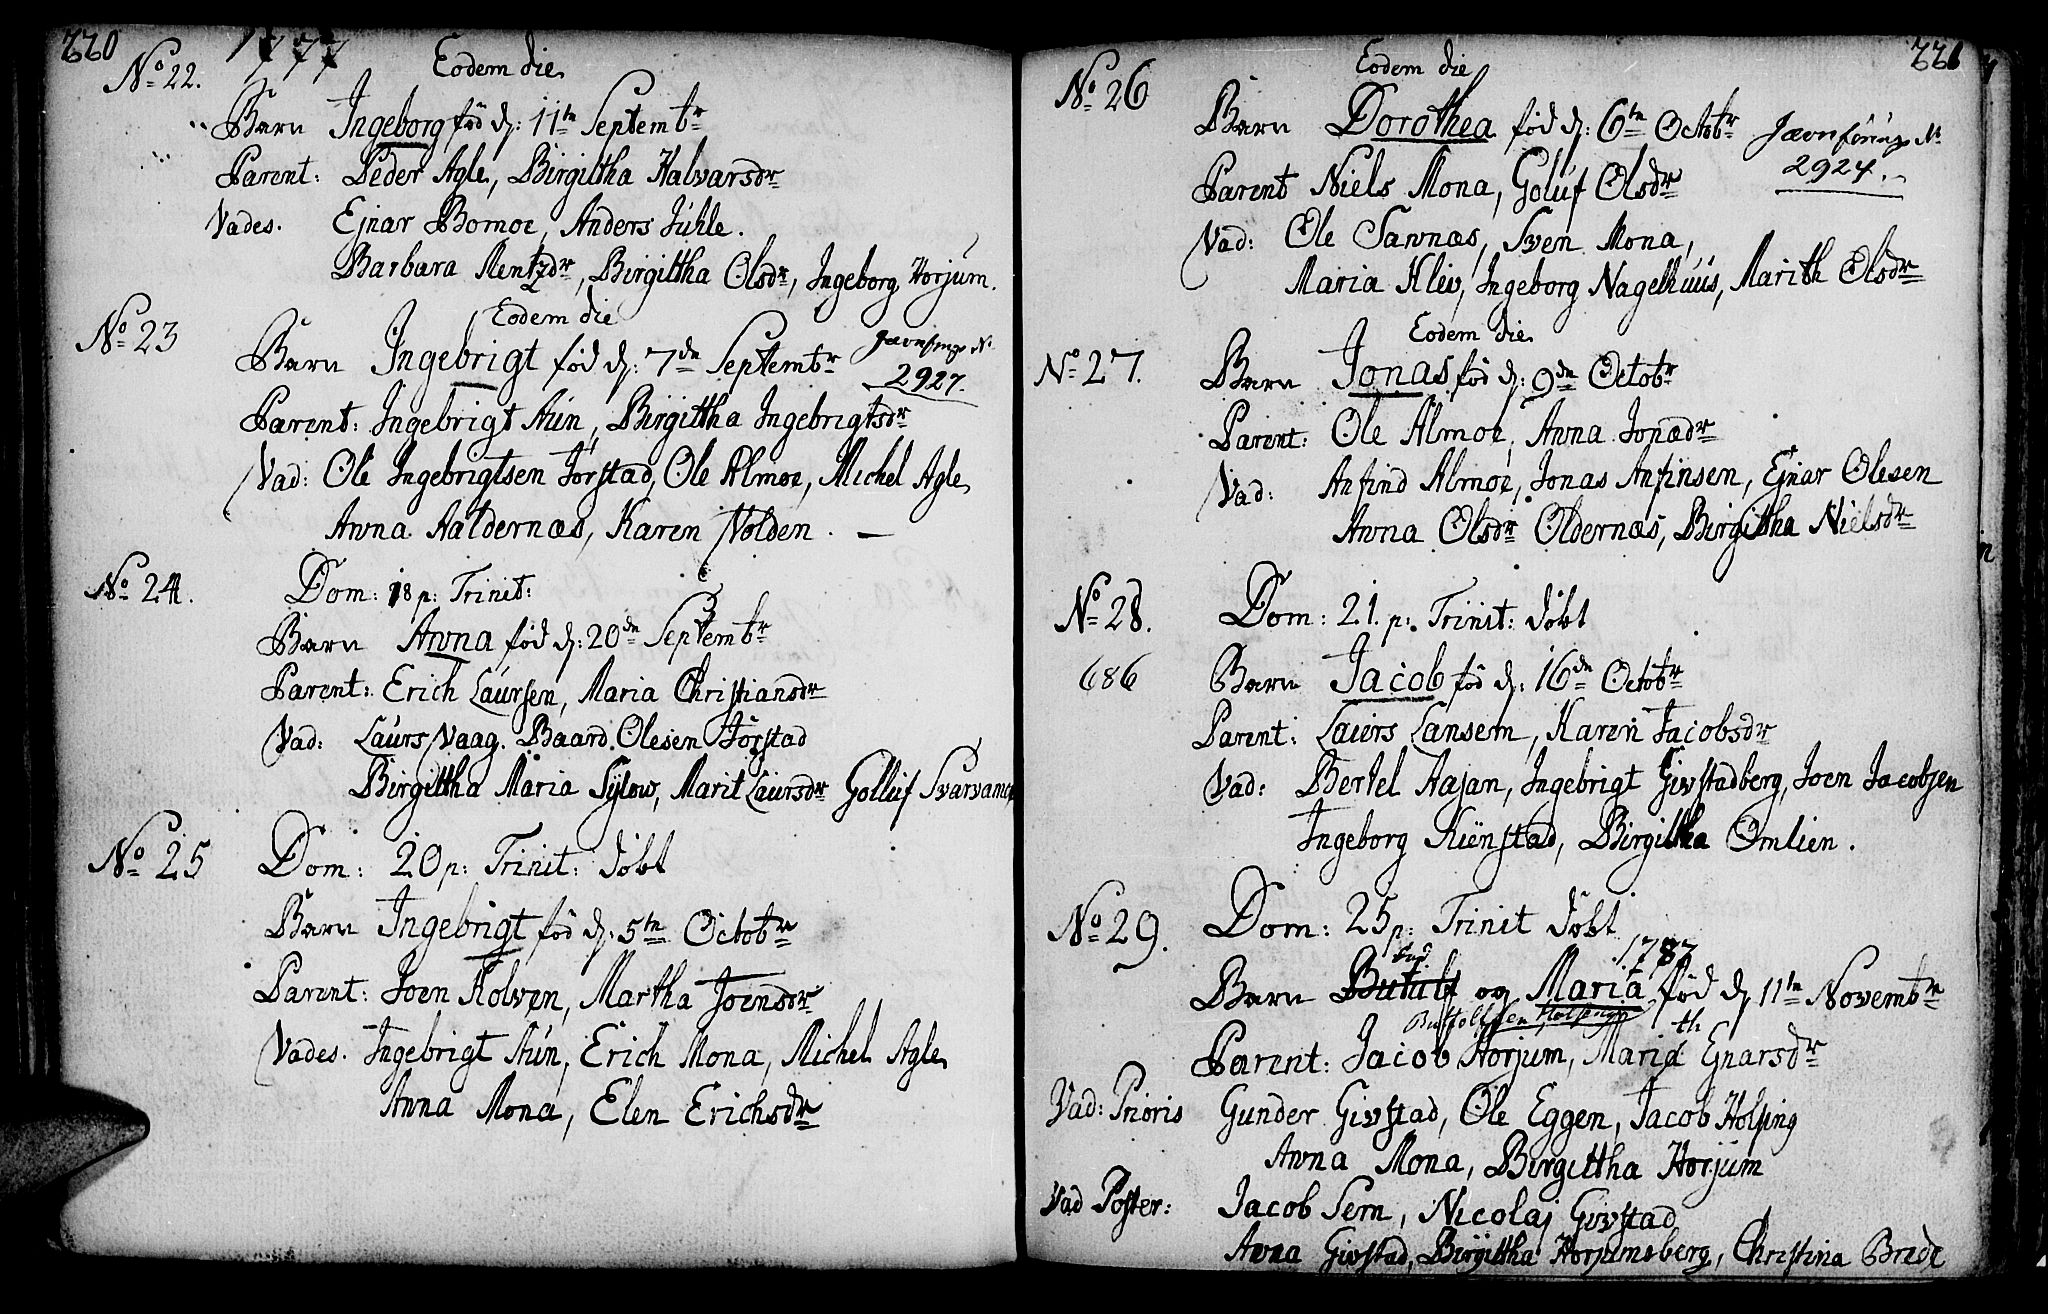 220 1777
Eodem die
No 22.
Barn Ingeborg fød d: 11te Septembr
Parent: Peder Agle, Birgittha Halvarsdr
Vades. Ejnar Bomoe, Anders Juhle.
Barbara Mentzdr, Birgittha Olsdr, Ingeborg Horjum.
Eodem die
No 23
Barn Ingebrigt fød d: 7de Septembr
2927.
Parent: Ingebrigt Aun, Birgittha Ingebrigtsdr
Vad: Ole Ingebrigtsen Jørstad, Ole Almoe, Michel Agle,
Anna Aaldernæs, Karen Nolden. —
No 24. Dom: 18 p: Trinit:
Barn Anna fød d: 20de Septembr
Parent: Erich Laursen, Maria Christiansdr
Vad: Laurs Vaag. Baard Olesen Jørstad
Birgittha Maria Sylow, Marit Laursdr Golluf Svarvamoe
No 25 Dom: 20 p: Trinit: døbt
Barn Ingebrigt fød d: 5te Octobr
Parent: Joen Kolven, Martha Joensdr
Vades. Ingebrigt Aun, Erich Mona, Michel Agle,
Anna Mona, Elen Erichsdr
221
Eodem die
No 26
Barn Dorothea fød d: 6te Octobr
Jævnføring No
2924.
Parent Niels Mona, Goluf Olsdr
Vad: Ole Savnæs, Sven Mona,
Maria Klev, Ingeborg Nagelhuus, Marith Olsdr
Eodem die
No 27.
Barn Jonas fød d: 9de Octobr
Parent: Ole Almoe, Anna Jonædr
Vad: Anfind Almoe, Jonas Anfinsen, Ejnar Olesen
Anna Olsdr Oldernæs, Birgittha Nielsdr
No 28. Dom: 21. p: Trinit: døbt
686 Barn Jacob fød d: 16de Octobr
Parent: Laurs Lansem, Karen Jacobsdr
Vad: Bertel Aajam, Ingebrigt Givstadberg, Joen Jacobsen
Ingeborg Kiënstad, Birgittha Omlien.
No 29. Dom: 25 p: Trinit døbt
1787
Barn Butulf og Maria fød d 11te Novembr
th
Parent: Jacob Horjum, Maria Ejnarsdr
Vad: Prioris Gunder Givstad, Ole Eggen, Jacob Holsing
Anna Mona, Birgittha Horjum
Vad Poster: Jacob Sem, Nicolaj Givstad
Anna Givstad, Birgittha Horjumsberg, Christina Brede